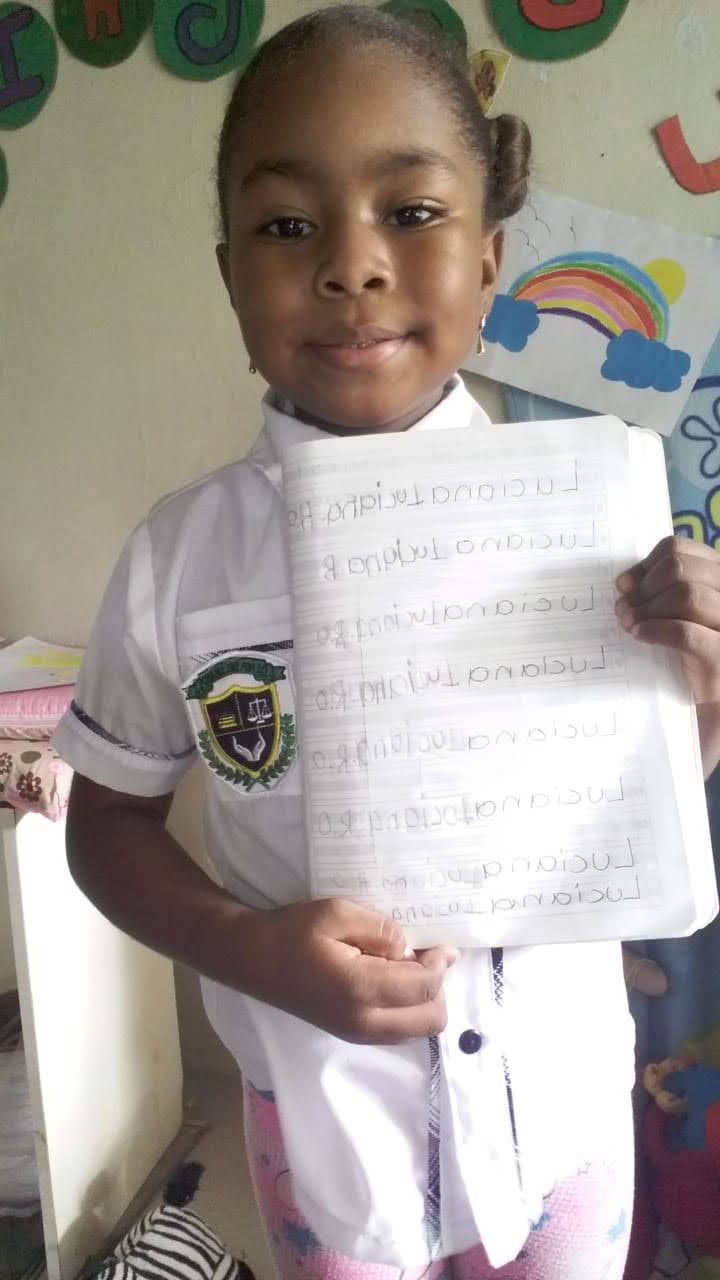 Luciana Luciana R.o
Luciana Luciana R
Luciana Luciana R.o
Luciana Luciana R.o
Luciana Luciana R.o
Luciana Luciana R.o
Luciana Luciana R.o
Luciana Luciana